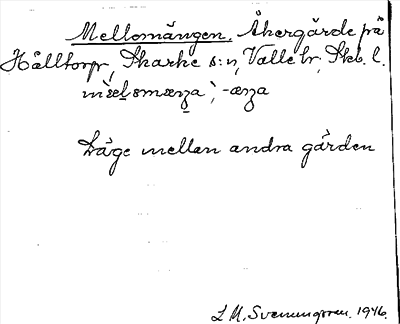 Mellomängen. Åkergärde på
Hålltorp, Skarke s:n, Valle hr, Skb. l.
Läge mellan andra gärden
L M. Svenungsson. 1946.